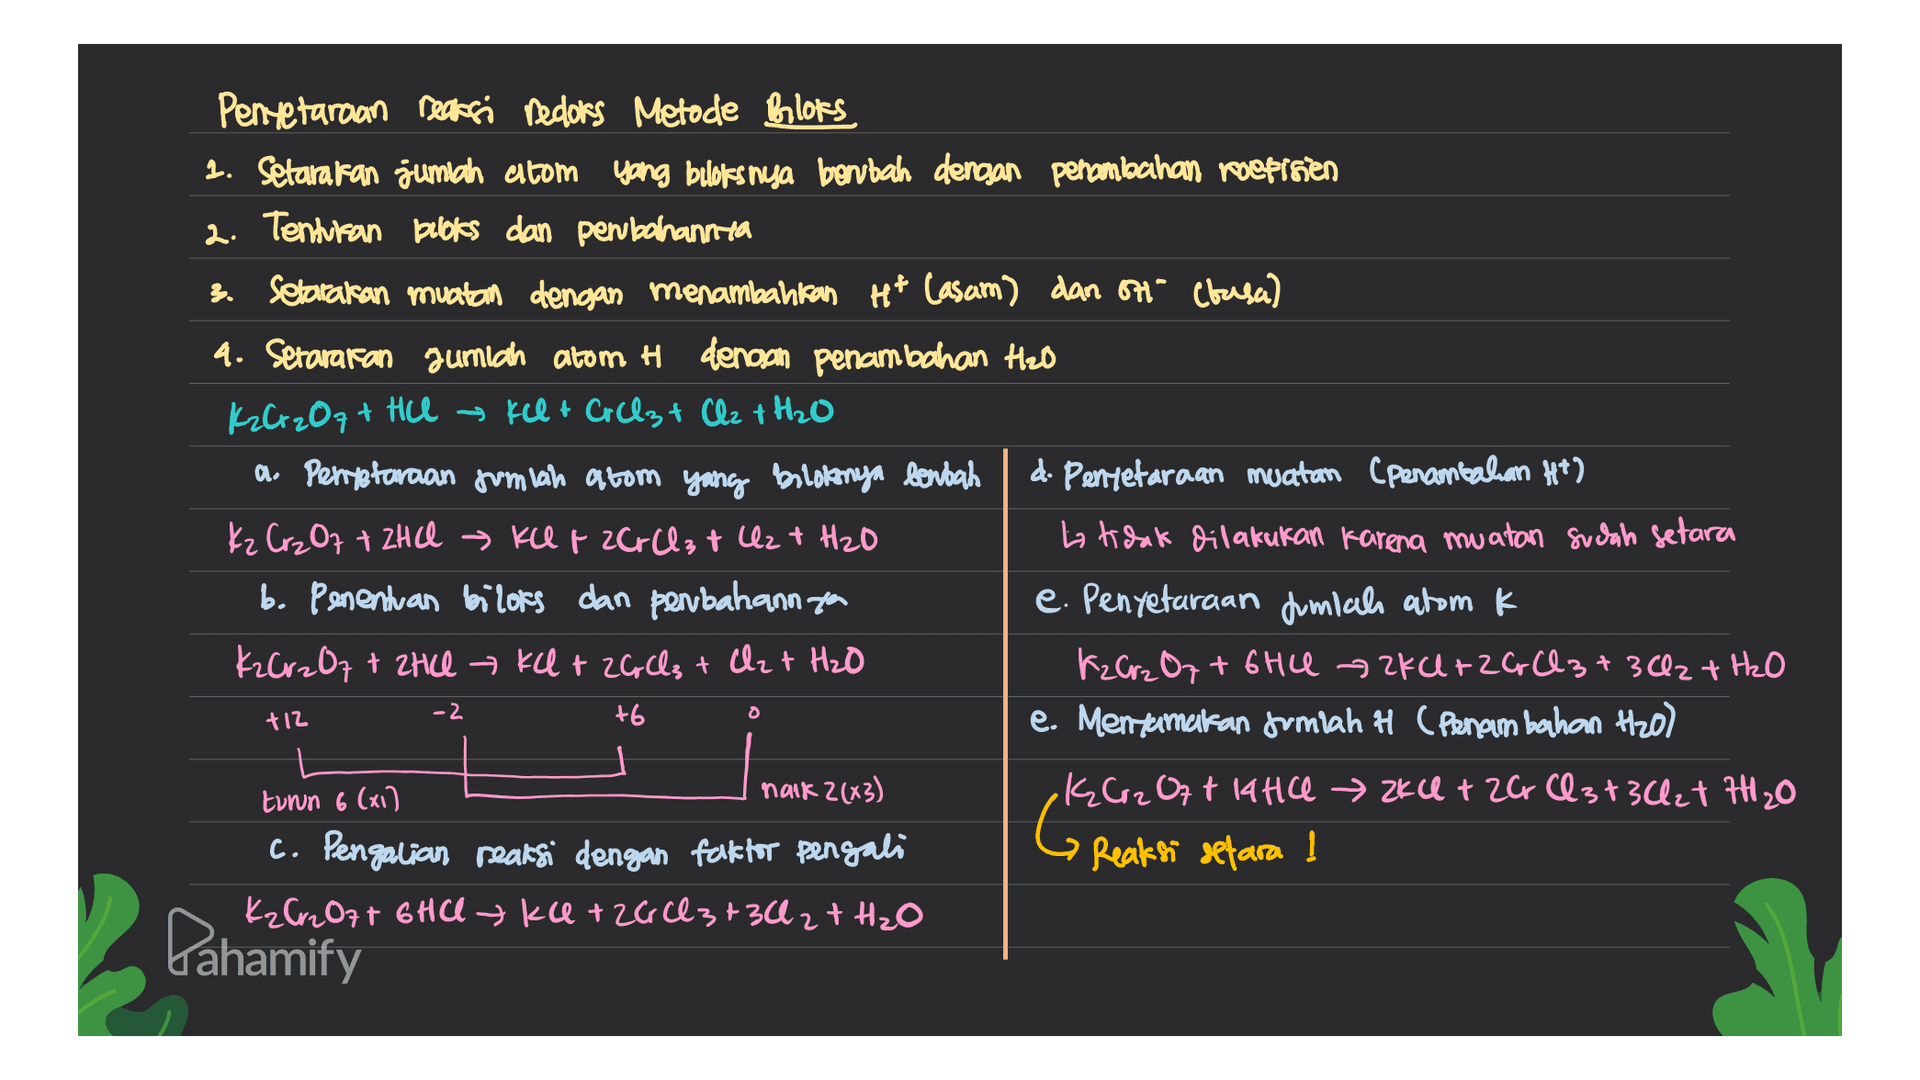 Penyetaraan reaksi redoks Metode Biloks
1. Setarakan jumlah atom yang biloksnya berubah dengan penambahan koefisien
2. Tentukan biloks dan perubahannya
3. Setarakan muatan dengan menambahkan H⁺ (asam) dan OH⁻ (basa)
4. Setarakan jumlah atom H dengan penambahan H₂O
K₂Cr₂O₇ + HCl → KCl + CrCl₃ + Cl₂ + H₂O
a. Penyetaraan jumlah atom yang biloksnya berubah
K₂Cr₂O₇ + 2HCl → KCl + 2CrCl₃ + Cl₂ + H₂O
b. Penentuan biloks dan perubahannya
K₂Cr₂O₇ + 2HCl → KCl + 2CrCl₃ + Cl₂ + H₂O
+12 -2 +6 0
turun 6 (x1) naik 2 (x3)
c. Pengalian reaksi dengan faktor pengali
K₂Cr₂O₇ + 6HCl → KCl + 2CrCl₃ + 3Cl₂ + H₂O
d. Penyetaraan muatan (penambahan H⁺)
↳ tidak dilakukan karena muatan sudah setara
e. Penyetaraan jumlah atom K
K₂Cr₂O₇ + 6HCl → 2KCl + 2CrCl₃ + 3Cl₂ + H₂O
e. Menyamakan jumlah H (Penambahan H₂O)
K₂Cr₂O₇ + 14HCl → 2KCl + 2CrCl₃ + 3Cl₂ + 7H₂O
↳ Reaksi setara !
Pahamify